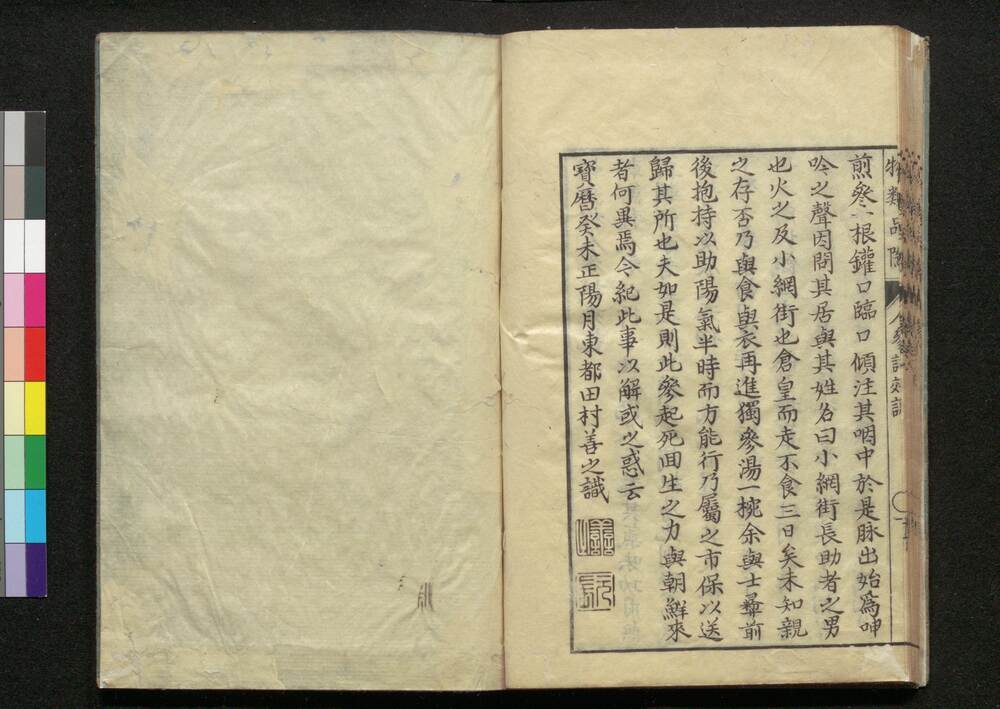 物類品隲
人參試效說
煎參一根鑵口臨口傾注其咽中於是脉出始爲呻
吟之聲因問其居與其姓名曰小網街長助者之男
也火之及小網街也倉皇而走不食三日矣未知親
之存否乃與食與衣再進獨參湯一椀余與士彞前
後抱持以助陽氣半時而方能行乃屬之市保以送
歸其所也夫如是則此參起死囬生之力與朝鮮來
者何異焉今紀此事以解或之惑云
寶曆癸未正陽月東都田村善之識
善之